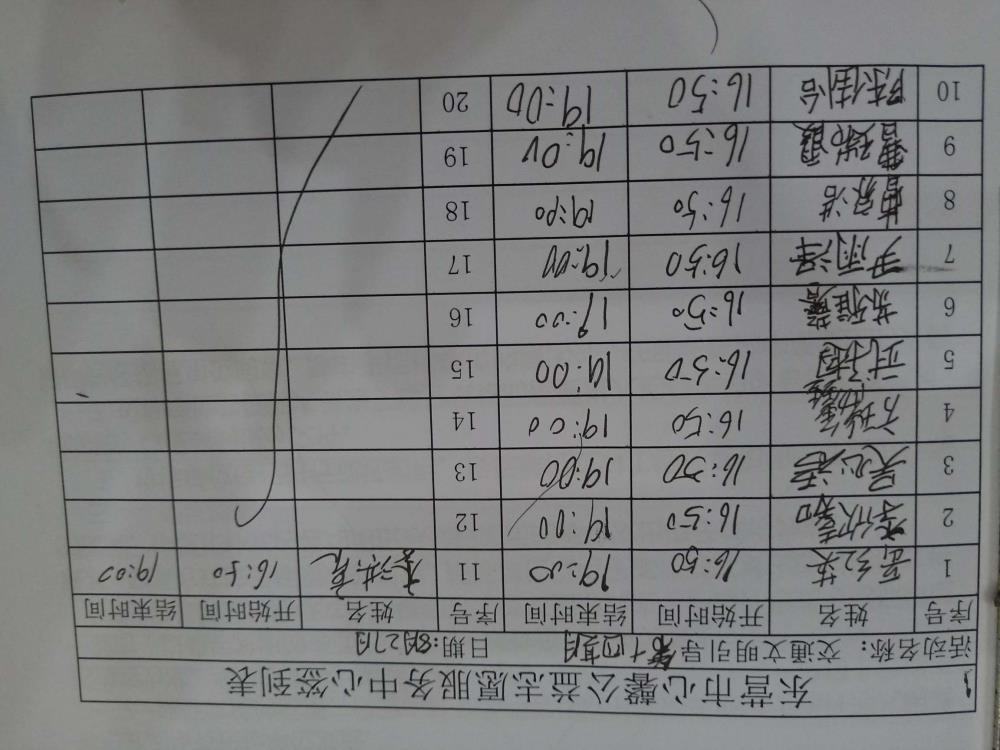 东营市心馨公益志愿服务中心签到表
活动名称：交通文明引导第十四期 日期：8月27日
序号 姓名 开始时间 结束时间 序号 姓名 开始时间 结束时间
1 16:50 19:00 11 李洪亮 16:50 19:00
2 李欣 16:50 19:00 12
3 吴心语 16:50 19:00 13
4 16:50 19:00 14
5 武 16:50 19:00 15
6 苏雅馨 16:50 19:00 16
7 尹雨泽 16:50 19:00 17
8 16:50 19:00 18
9 曹瑞霞 16:50 19:00 19
10 陈佳怡 16:50 19:00 20